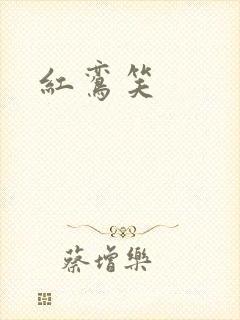 紅鸞笑
蔡增樂